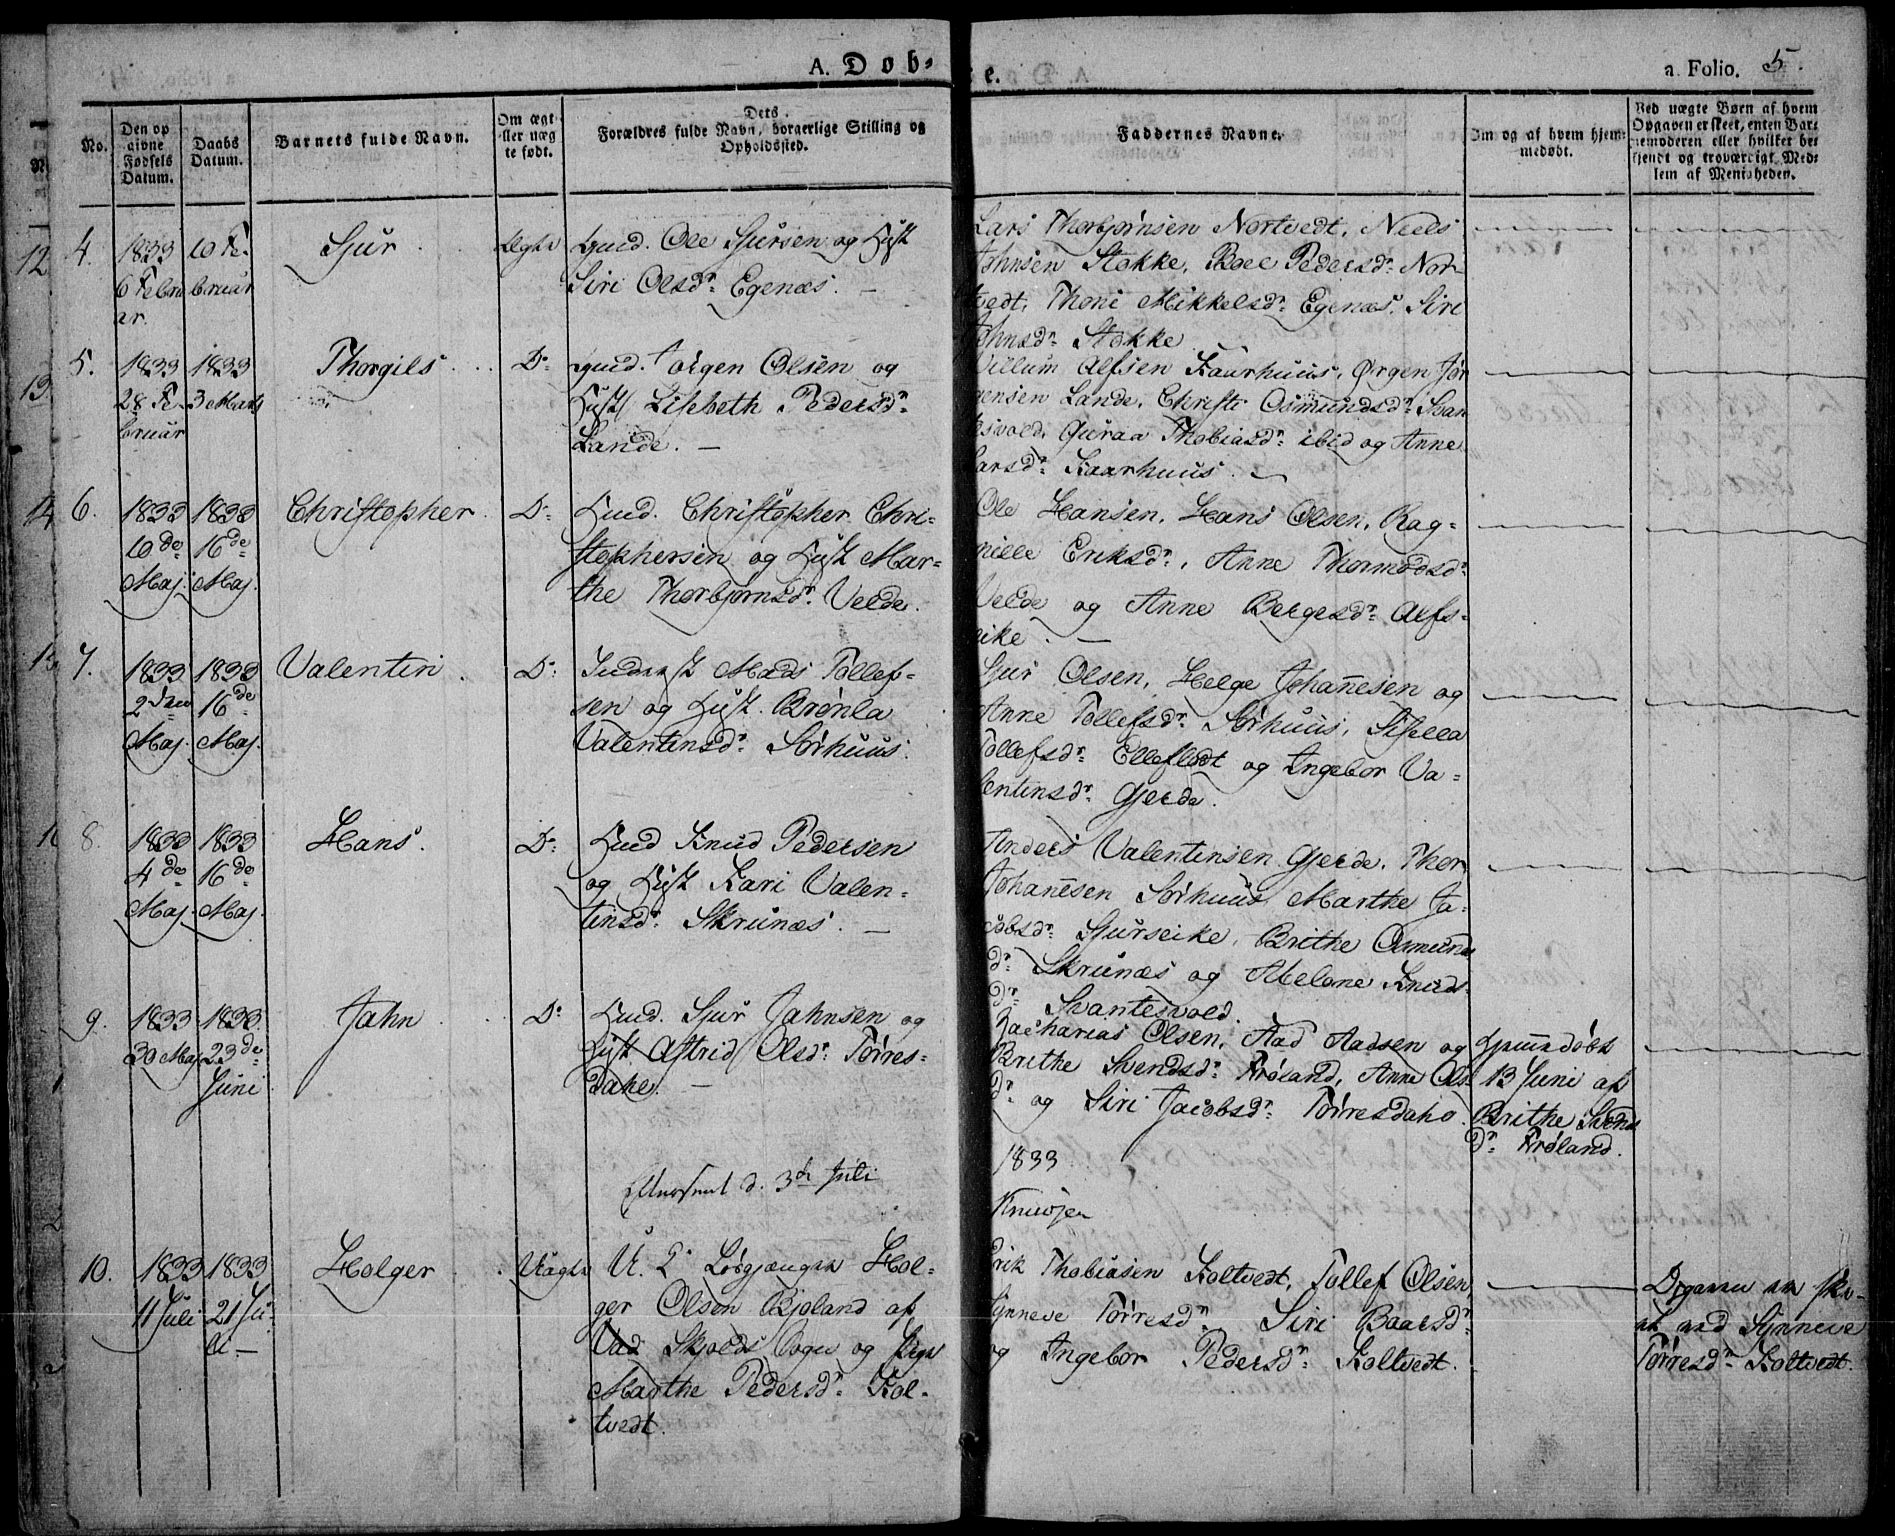 A. Døb-
e.
a. Folio. 5.
No.
Den op
givne
Fødsels
Datum.
Daabs
Datum.
Barnets fulde Navn.
Om ægt
eller uæg
te født.
Dets
Forældres fulde Navn, borgerlige Stilling og
Opholdssted.
Faddernes Navne.
Om og af hvem hjem-
medøbt.
Ved uægte Børn af hvem
Opgaven er skeet, enten Bar-
nemoderen eller hvilket be-
kjendt og troværdigt Med-
lem af Menigheden.
4.
1833
6 Febru
ar.
10 Fe-
bruar
Sjur
Ægte
Ole Sjursen og Hust
Siri Olsdr. Egenæs. —
Lars Thorbjørnsen Nortvedt, Niels
Johnsen Stokke, Roel Pedersdr. Nor-
tvedt, Thoni Mikkelsdr. Egenæs, Siri
Johnsdr. Stokke
5.
1833
28 Fe-
bruar
1833
3 Marts
Thorgils
Do.
Jørgen Olsen og
Hust Lisebeth Pedersdr.
Lande. —
Villum Alfsen Kaarhuus, Ørgen Jør
gensen Lande, Christi Osmundsdr. Svan
tesvold, Guraa Thobiasdr. ibid og Anne
Larsdr. Kaarhuus.
6.
1833
10de
Maj.
1833
16de
Maj.
Christopher
Do.
Huud. Christopher Chri-
stophersen og Hust Mar-
the Thorbjørnsdr. Velde.
Ole Hansen, Hans Olsen, Rag-
nille Eriksdr., Anne Thormodsdr.
Velde og Anne Børgesdr. Alfs-
eike. —
7.
1833
2den
Maj.
1833
16de
Maj.
Valentin
Do.
Inderst Mads Tollef-
sen og Hust. Brønla
Valentinsdr. Sørhuus.
Sjur Olsen, Helge Johanesen og
Anne Tollefsdr. Sørhuus, Sisella
Tollefsdr. Elleflodt og Ingebor Va-
lentinsdr. Gjerde.
8.
1833
4de
Maj.
1833
16de
Maj.
Hans.
Do.
Huud Knud Pedersen
og Hust Kari Valen-
tinsdr. Skrunæs. —
Anders Valentinsen Gjerde, Thor
Johanesen Sørhuus, Marthe Ja-
cobsdr. Sjurseike, Brithe Osmunds
dr. Skrunæs og Melone Knuds-
dr. Svantesvold.
9.
1833
30 Maj
1833
23de
Juni
Jahn
Do.
Huud. Sjur Jahnsen og
Hust Astrid Olsdr. Tørres-
dahe. —
Zacharias Olsen, Aad Aadsen og
Brithe Svendsdr. Frøland, Anne Ols
dr. og Siri Jacobsdr. Tørresdahe.
Hjemmedøbt
13 Juni af
Brithe Svends
dr. Frøland.
d. 3de Juli
1833
10.
1833
11 Juli
1833
21 Ju-
li —
Holger
Uægte
Hol-
ger Olsen Bjoland af
Vad Skjolds Sogn og Pige
Marthe Pedersdr. Kol-
tvedt.
Erik Thobiasen Koltvedt, Tollef Olsen,
Synneve Tørresdr. Siri Baarsdr.
og Ingebor Pedersdr. Koltvedt.
Opgaven er ske-
et ved Synneve
Tørresdr. Koltvedt.